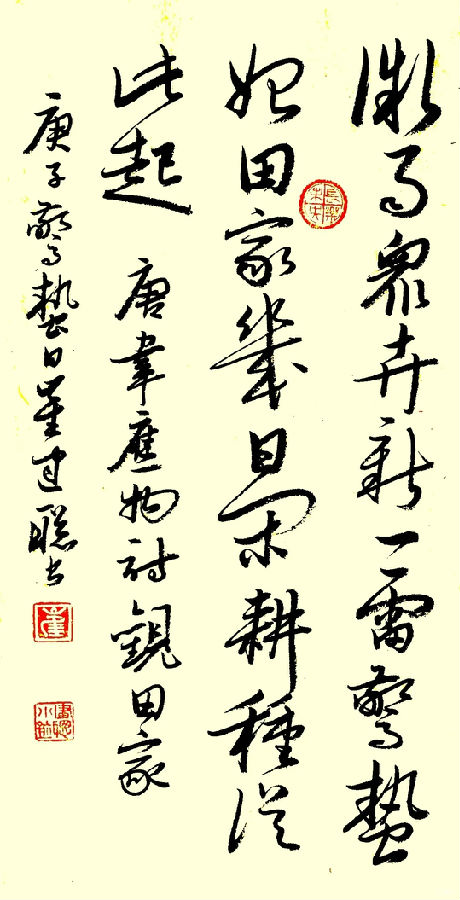 微雨眾卉新一雷驚蟄
始田家幾日閑耕種從
此起 唐韋應物詩觀田家
庚子驚蟄日董建聰书
長樂未央
董